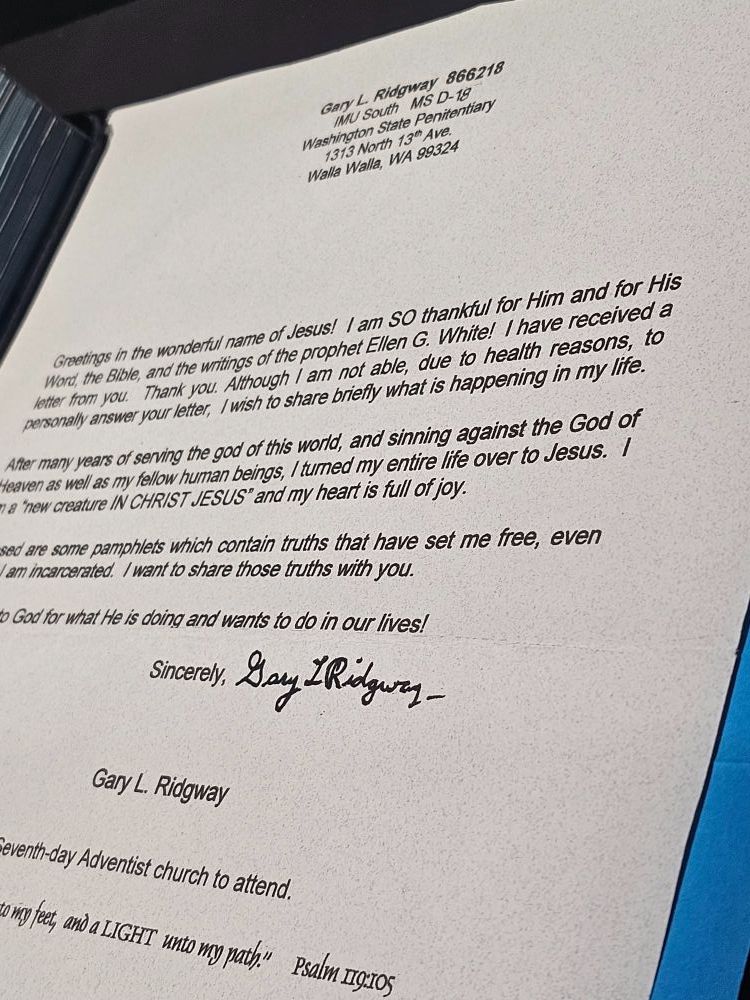 Gary L. Ridgway 866218
IMU South MS D-18
Washington State Penitentiary
1313 North 13th Ave.
Walla Walla, WA 99324
Greetings in the wonderful name of Jesus! I am SO thankful for Him and for His
Word, the Bible, and the writings of the prophet Ellen G. White! I have received a
letter from you. Thank you. Although I am not able, due to health reasons, to
personally answer your letter, I wish to share briefly what is happening in my life.
After many years of serving the god of this world, and sinning against the God of
Heaven as well as my fellow human beings, I turned my entire life over to Jesus. I
a "new creature IN CHRIST JESUS" and my heart is full of joy.
are some pamphlets which contain truths that have set me free, even
I am incarcerated. I want to share those truths with you.
to God for what He is doing and wants to do in our lives!
Sincerely, Gary L Ridgway
Gary L. Ridgway
Seventh-day Adventist church to attend.
to my feet, and a LIGHT unto my path." Psalm 119:105